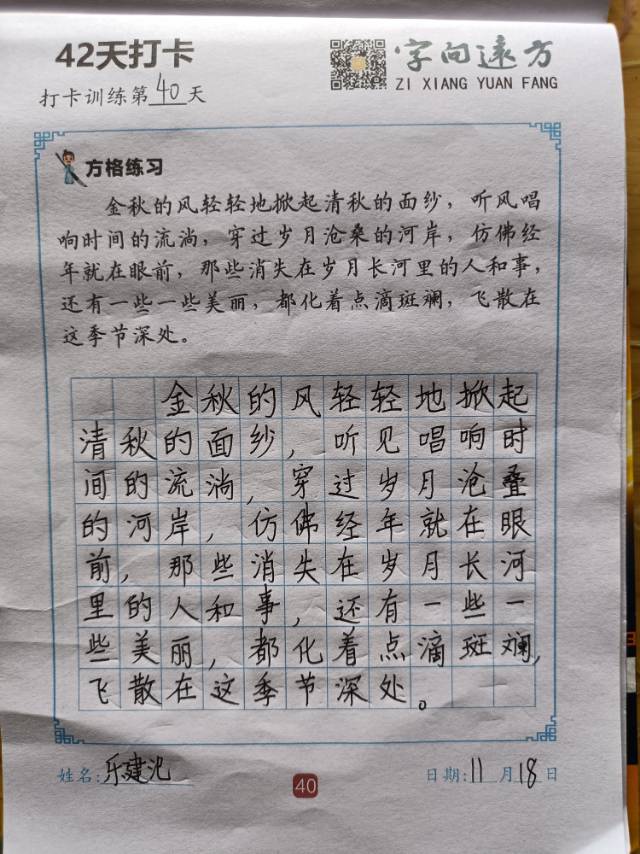 42天打卡
字向远方
ZI XIANG YUAN FANG
打卡训练第40天
方格练习
金秋的风轻轻地掀起清秋的面纱，听风唱
响时间的流淌，穿过岁月沧桑的河岸，仿佛经
年就在眼前，那些消失在岁月长河里的人和事，
还有一些一些美丽，都化着点滴斑斓，飞散在
这季节深处。
金秋的风轻轻地掀起
清秋的面纱，听见唱响时
间的流淌，穿过岁月沧叠
的河岸，仿佛经年就在眼
前，那些消失在岁月长河
里的人和事，还有一些一
些美丽，都化着点滴斑斓，
飞散在这季节深处。
姓名：乐建
40
日期：11月18日